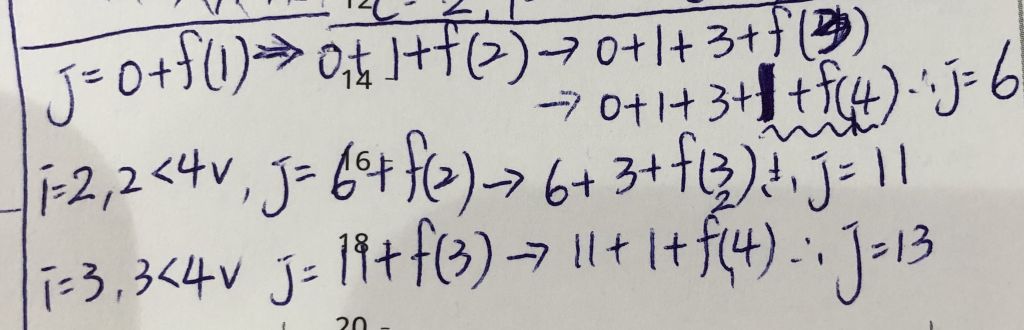 j=0+f(1)→0+1+f(2)→0+1+3+f(3)
14
→0+1+3+1+f(4)∴j=6
16
i=2,2<4√,j=6+f(2)→6+3+f(3)∴j=11
2
18
i=3,3<4√ j=11+f(3)→11+1+f(4)∴j=13
20